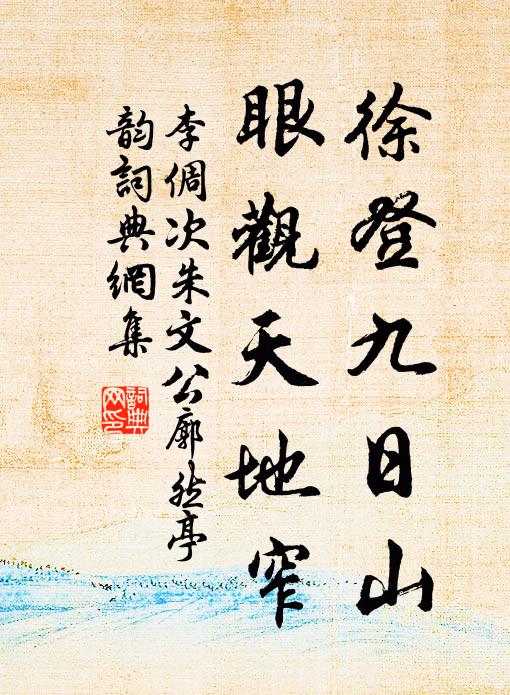 徐登九日山
眼觀天地窄
李倜次朱文公廓然亭
韵詞典網集
詞典
网印